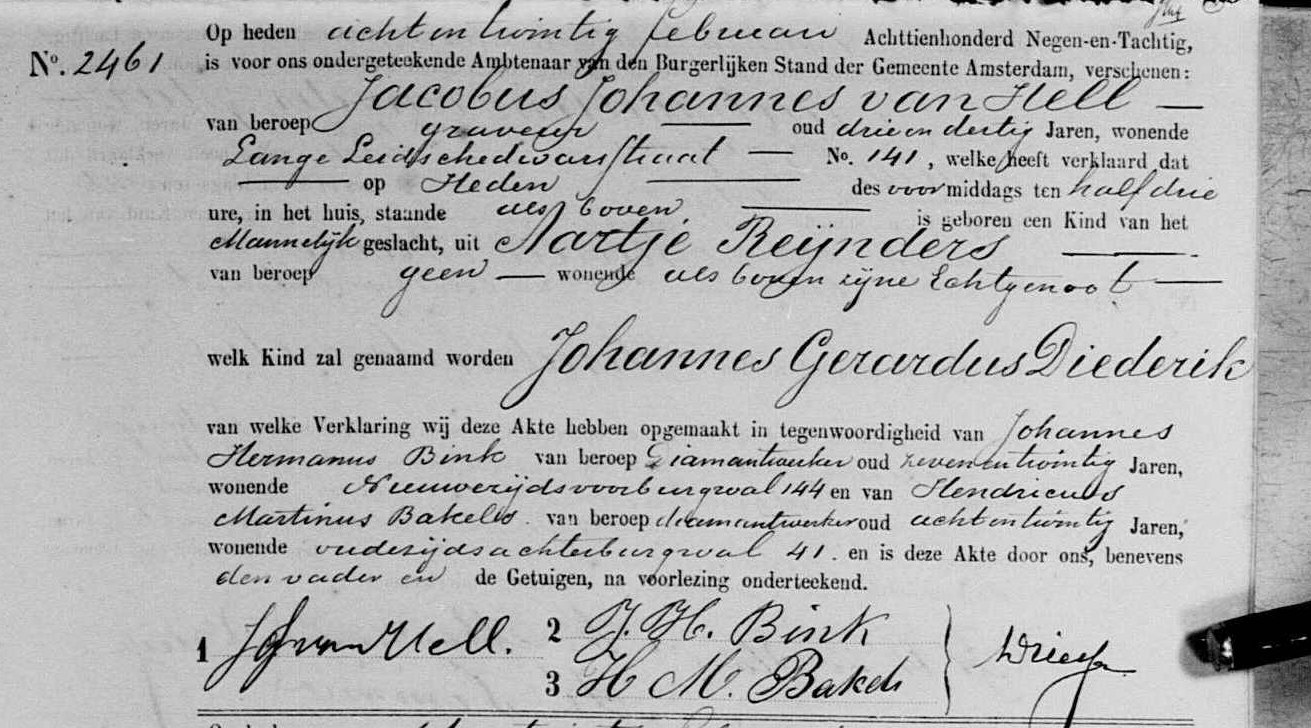 Op heden acht en twintig februari Achttienhonderd Negen-en-Tachtig,
No. 2461 is voor ons ondergeteekende Ambtenaar van den Burgerlijken Stand der Gemeente Amsterdam, verschenen:
Jacobus Johannes van Hell —
van beroep graveur — oud drie en dertig Jaren, wonende
Lange Leidschedwarsstraat — No. 141, welke heeft verklaard dat
— op Heden — des voormiddags ten half drie
ure, in het huis, staande als boven — is geboren een Kind van het
Mannelijk geslacht, uit Aartje Reijnders —
van beroep geen — wonende als boven zijne Echtgenoot —
welk Kind zal genaamd worden Johannes Gerardus Diederik
van welke Verklaring wij deze Akte hebben opgemaakt in tegenwoordigheid van Johannes
Hermanus Bink van beroep Diamantwerker oud zeven en twintig Jaren,
wonende Nieuwezijdsvoorburgwal 144 en van Hendricus
Martinus Bakels. van beroep diamantwerker oud acht en twintig Jaren,
wonende oudezijdsachterburgwal 41. en is deze Akte door ons, benevens
den vader en de Getuigen, na voorlezing onderteekend.
1 JJ van Hell. 2 J. H. Bink
3 H M. Bakels